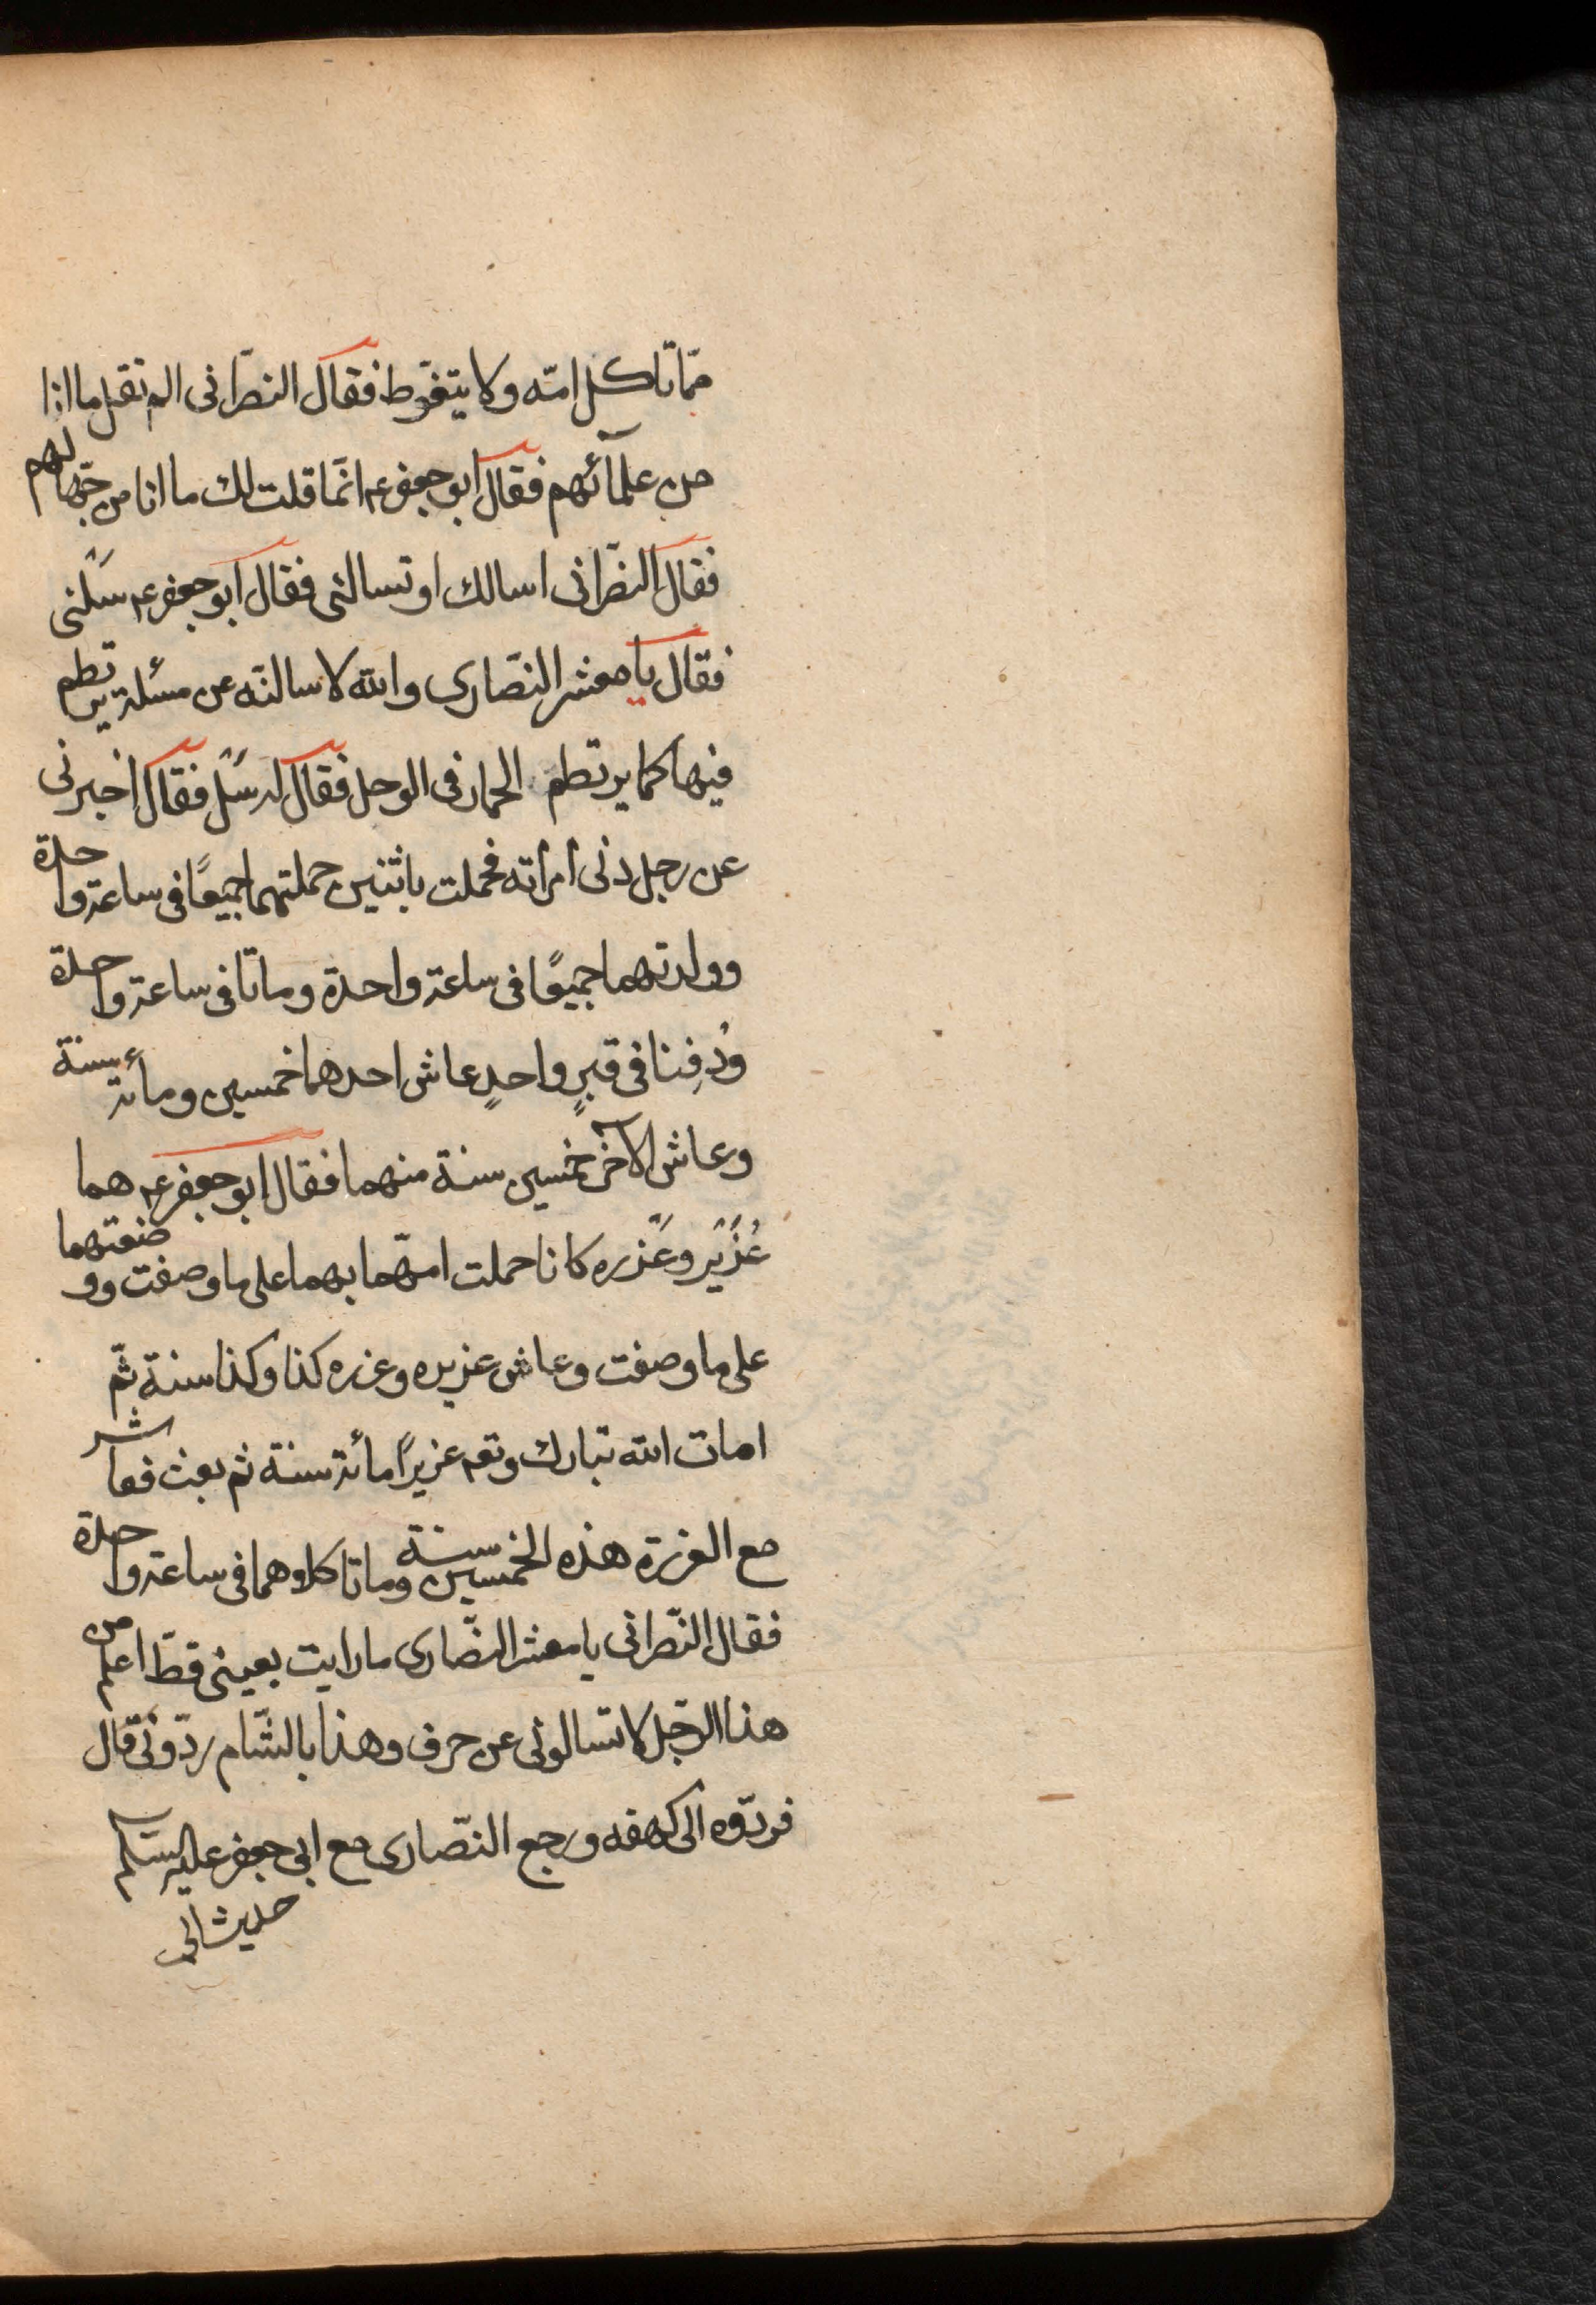 ممّا تاكل امّه ولا يتغوّط فقال النصرانى الم تقل ما انا
من علمائهم فقال ابو جعفر ع انّما قلت لك ما انا من جهّالهم
فقال النصرانى اسالك او تسالنى فقال ابو جعفر ع سَلنى
فقال يا معشر النصّارى والله لاسالنّه عن مسئلة يرتطم
فيها كما يرتطم الحمار فى الوحل فقال له سَل فقال اخبرنى
عن رجل دنى امرأته فحملت باثنين حملتهما جميعًا فى ساعة واحدة
وولدتهما جميعًا فى ساعة واحدة وماتا فى ساعة واحدة
ودُفِنا فى قبرٍ واحدٍ عاش احدهما خمسين ومأئة سنة
وعاش الآخر خمسين سنة منهما فقال ابو جعفر ع هما
عُزَير وعَزره كانا حملت امّهما بهما على ما وصفت ووضعتهما
على ما وصفت وعاش عزيره وعزره كذا وكذا سنة ثمّ
امات الله تبارك وتع عزيرًا مأئة سنة ثم بعث فعاش
مع العزرة هذه الخمسين سنة وماتا كلاوهما فى ساعة واحدة
فقال النّصرانى يا معشر النصّارى ما رايت بعينى قطّ اعلم من
هذا الرّجل لا تسالونى عن حرف وهذا بالشّام ردّونى قال
فردّوه الى كهفه ورجع النصّارى مع ابى جعفر عليه السّلم
حديث الى